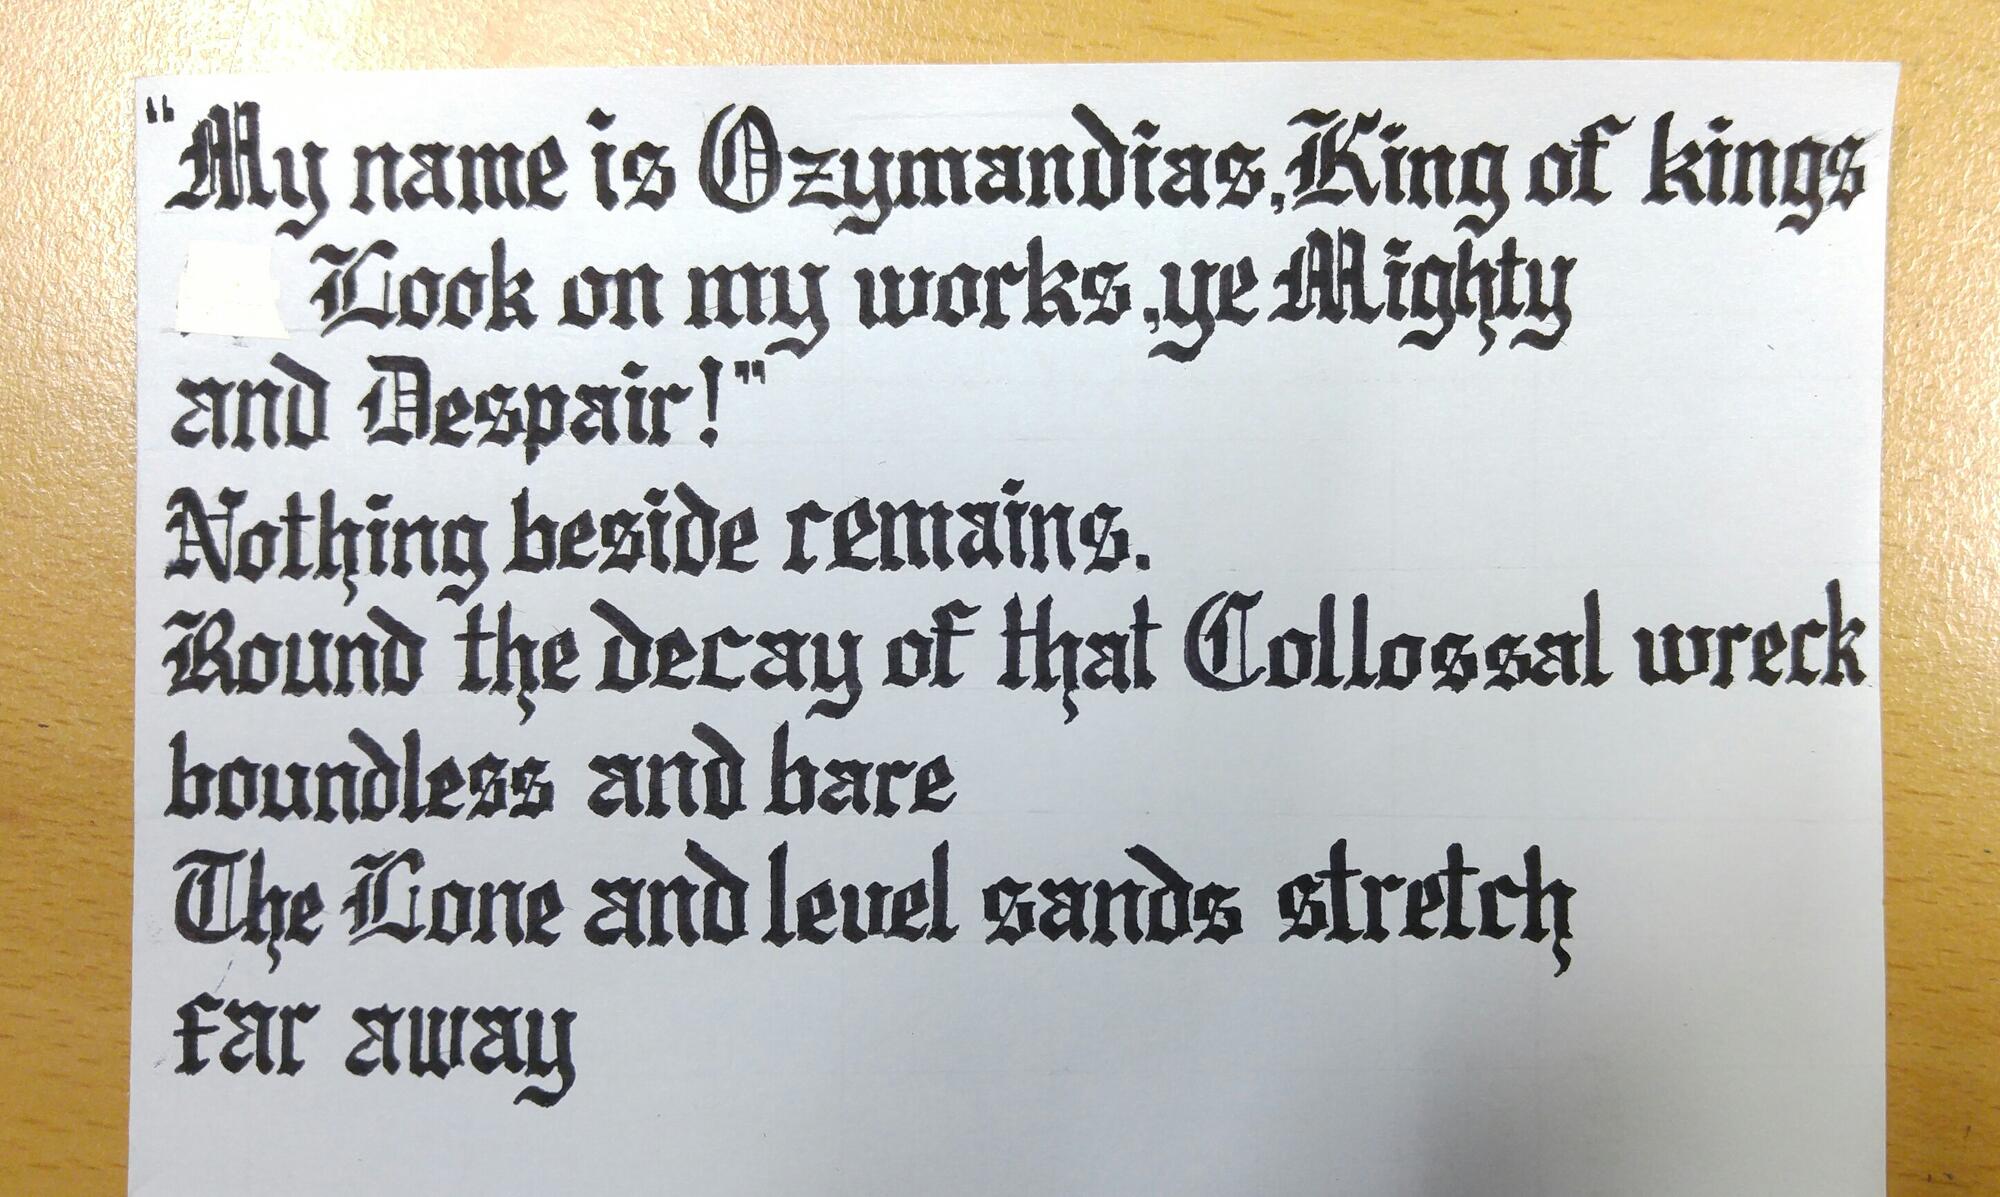 "My name is Ozymandias, King of kings
Look on my works, ye Mighty
and Despair!"
Nothing beside remains.
Round the decay of that Collossal wreck
boundless and bare
The Lone and level sands stretch
far away